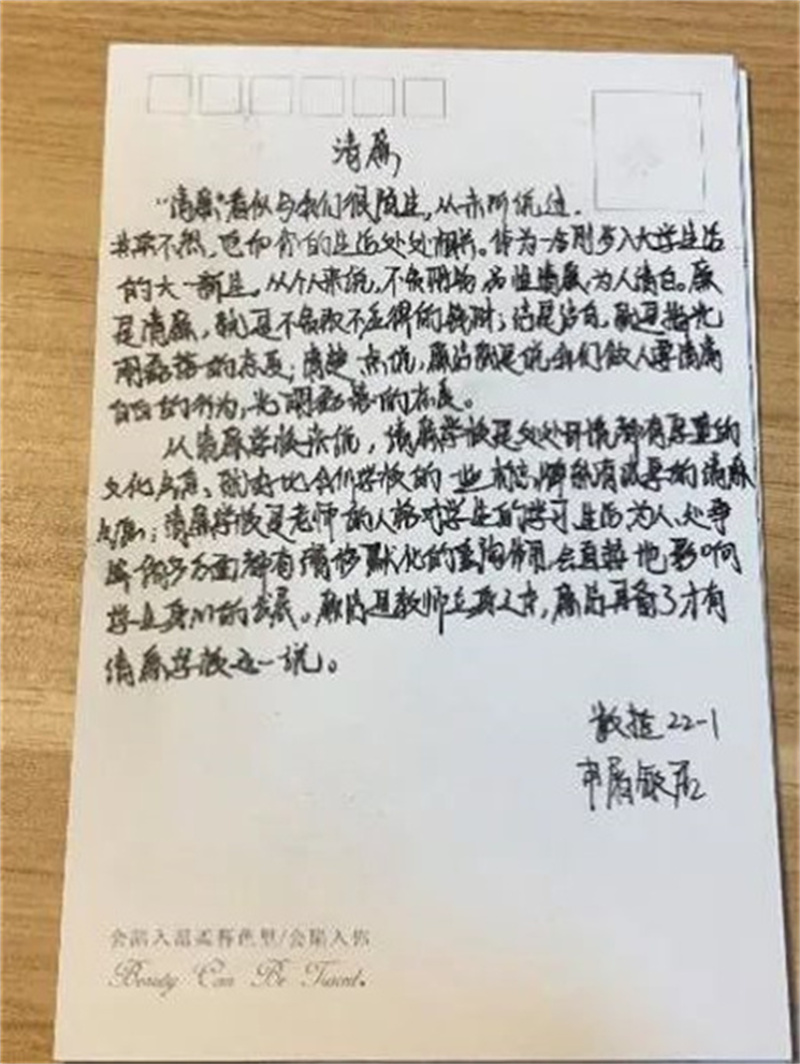 清廉
“清廉”看似与我们很陌生，从未听说过.
其实不然，它和你的生活处处相关。作为一名刚步入大学生活
的大一新生，从个人来说，不负明为品性清廉，为人清白。廉
是清廉，就是不贪取不应得的钱财；洁是洁白，就是指光
明磊落的态度；清楚一点说，廉洁就是说我们做人要清清
白白的行为，光明磊落的态度。
从清廉学校来说，清廉学校是处处环境都有厚重的
文化点底、就好比我们学校的一些标志，牌就有浓厚的清廉
点底；清廉学校是老师的人格对学生的学习生活为人、处事
等很多方面都有潜移默化的熏陶作用，会直接地影响
学生身心的发展。廉洁是教师立身之本，廉洁具备了才有
清廉学校这一说。
数控22-1
Beauty Can Be Turned.